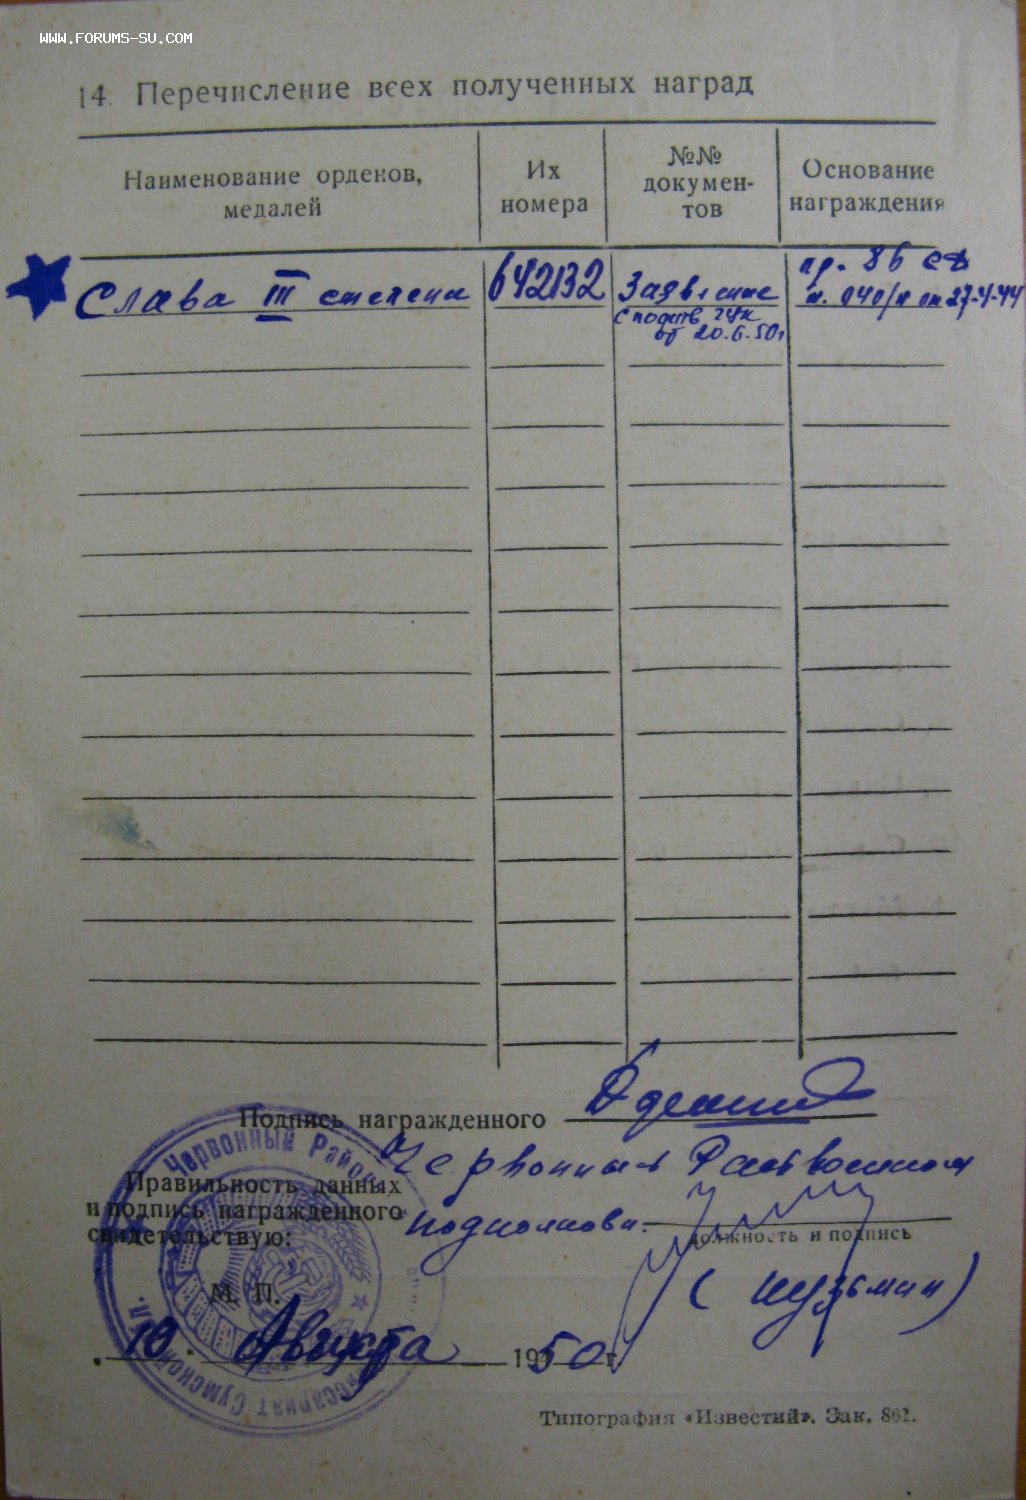 WWW.FORUMS-SU.COM
14. Перечисление всех полученных наград
Наименование орденов,
медалей
Их
номера
№№
докумен-
тов
Основание
награждения
Слава III степени
642132
Заявление
от 20.6.50г
пр. 86 сд
н. 040/н от 27.4.44
Подпись награжденного
Червонный Райвоенком
Правильность данных
и подпись награженного
свидетельствую:
подполков.
должность и подпись
М. П.
10 Августа 1950 г.
Червонный Районный
Сумской
Типография «Известий». Зак. 861.